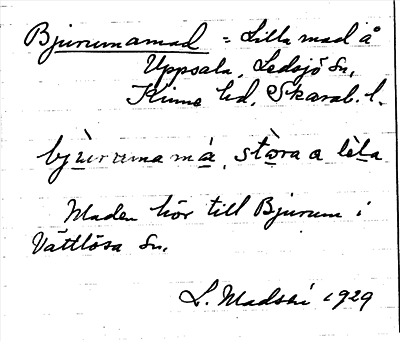 Bjurumamad = Lilla mad å
Uppsala, Ledsjö Sn,
Kinne hd, Skarab. l.
bjùrumamá, stòra a lèla
Maden hör till Bjurum i
Vättlösa Sn.
L. Madské 1929